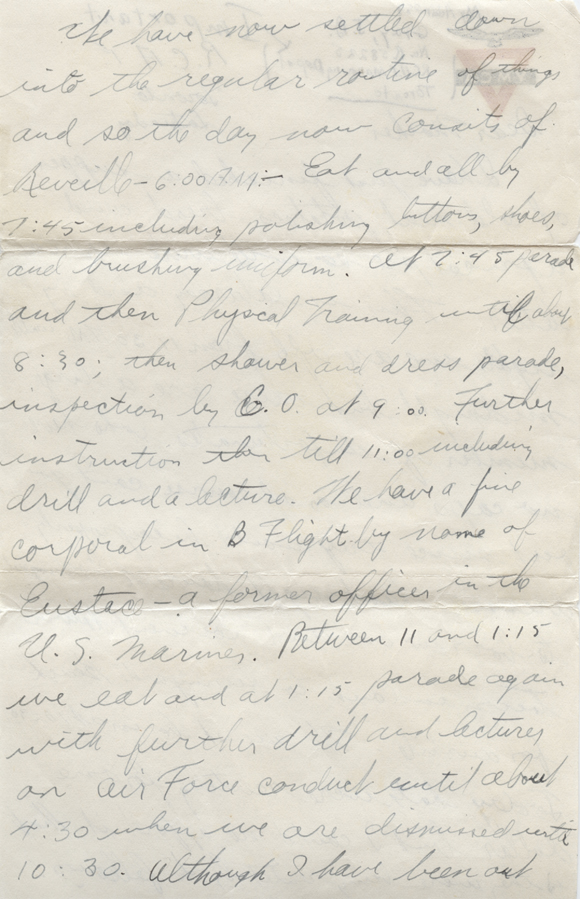 We have now settled down
into the regular routine of things
and so the day now consits of
Reveille - 6:00 A.M. - Eat and all by
7:45 including polishing buttons, shoes,
and brushing uniform. At 7:45 parade
and then Physical Training until about
8:30; then shower and dress parade,
inspection by C.O. at 9:00. Further
instruction then till 11:00 including
drill and a lecture. We have a fine
corporal in B Flight by name of
Eustace - a former officer in the
U.S. Marines. Between 11 and 1:15
we eat and at 1:15 parade again
with further drill and lectures
on Air Force conduct until about
4:30 when we are dismissed until
10:30. Although I have been out